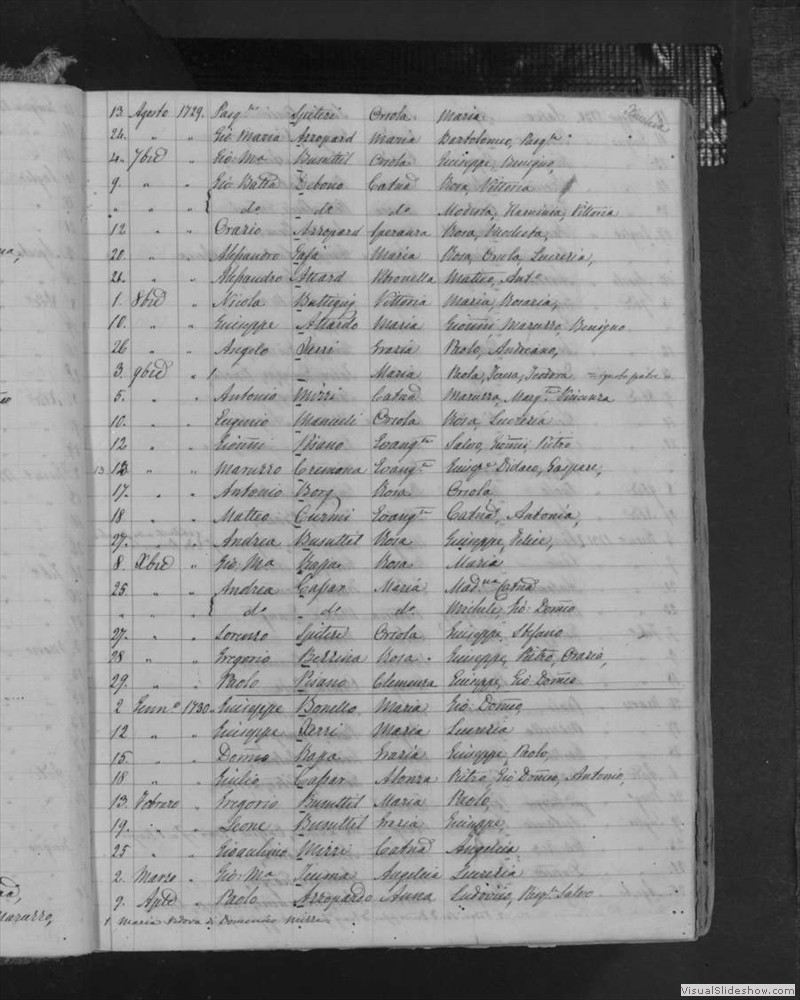 13. Agosto 1729. Pasq.le Spiteri Oriola Maria
24. " " Gio: Maria Azzopard Maria Bartolomeo, Pasq.le
4. 7bre " Gio: Ma Busuttil Oriola Giuseppe, Benigno,
9. " " Gio: Batta Debono Catna Rosa, Vittoria
" " { do do do Modesta, Flaminia, Vittoria
12 " " Orazio Azzopard Speranza Rosa, Modesta,
20. " " Alessandro Gafà Maria Rosa, Oriola, Lucrezia,
21. " " Alessandro Attard Petronella Matteo, Ant.o
1. 8bre " Nicola Buttigieg Vittoria Maria, Rosaria,
10. " " Giuseppe Attardo Maria Gionni Maruzzo, Benigno
26 " " Angelo Xerri Grazia Paolo, Andreano,
3. 9bre " 1 Maria Paola, Teodora
5. " " Antonio Mizzi Catna Maruzza, Marg.ta Vincenza
10. " " Eugenio Manueli Oriola Rosa, Lucrezia
12 " " Gionni Pisano Evang.ta Salvo, Gionni, Pietro
13 13 " " Maruzzo Cremona Evang.ta Didaco, Gaspare,
17. " " Antonio Borg Rosa Oriola
18 " " Matteo Curmi Evang.ta Catna, Antonia,
27. " " Andrea Busuttil Rosa Giuseppe, Felice,
8. Xbre " Gio: Ma Bapa Rosa Maria
25. " " Andrea Cassar Maria Mad.na Catna
" " { do do do Michele, Gio: Domco
27. " " Lorenzo Spiteri Oriola Giuseppe, Stefano
28 " " Gregorio Bezzina Rosa Giuseppe, Pietro, Orazio,
29. " " Paolo Pisano Clemenza Giuseppe, Gio: Domco
2 Genn.o 1730. Giuseppe Bonello Maria Gio: Domco,
12 " " Giuseppe Xerri Maria Lucrezia
15. " " Domco Bapa Grazia Giuseppe, Paolo,
18 " " Giulio Cassar Alonza Pietro, Gio: Domco, Antonio,
13. Febraro " Gregorio Busuttil Maria Paolo,
19. " " Leone Busuttil Grazia Giuseppe,
25 " " Mizzi Catna Angelica
2. Marzo " Gio: Ma Angelica Lucrezia
9. Aple " Paolo Azzopardo Anna Ludovico, Pasq.le Salvo
1 Maria Vedova di Domenico Mizzi
VisualSlideshow.com